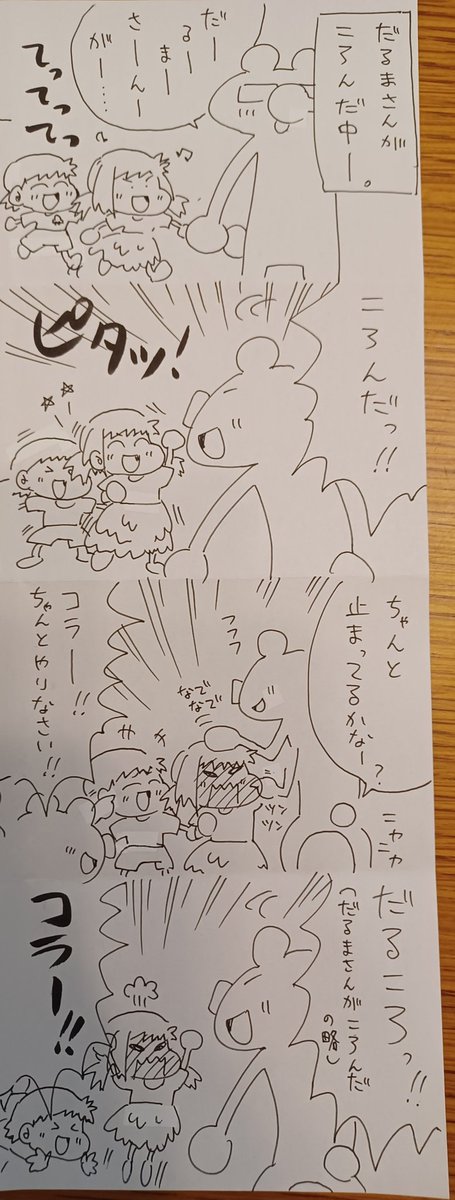 だるまさんが
ころんだ中ー。
だー
るー
まー
さーんー
がー…
てってってっ
ころんだっ!!
ピタッ!
ちゃんと
止まってるかなー?
ニヤニヤ
フフフ
なでなで
ツンツン
コラー!!
ちゃんとやりなさい!!
だるころっ!!
(だるまさんがころんだ
の略)
コラー!!